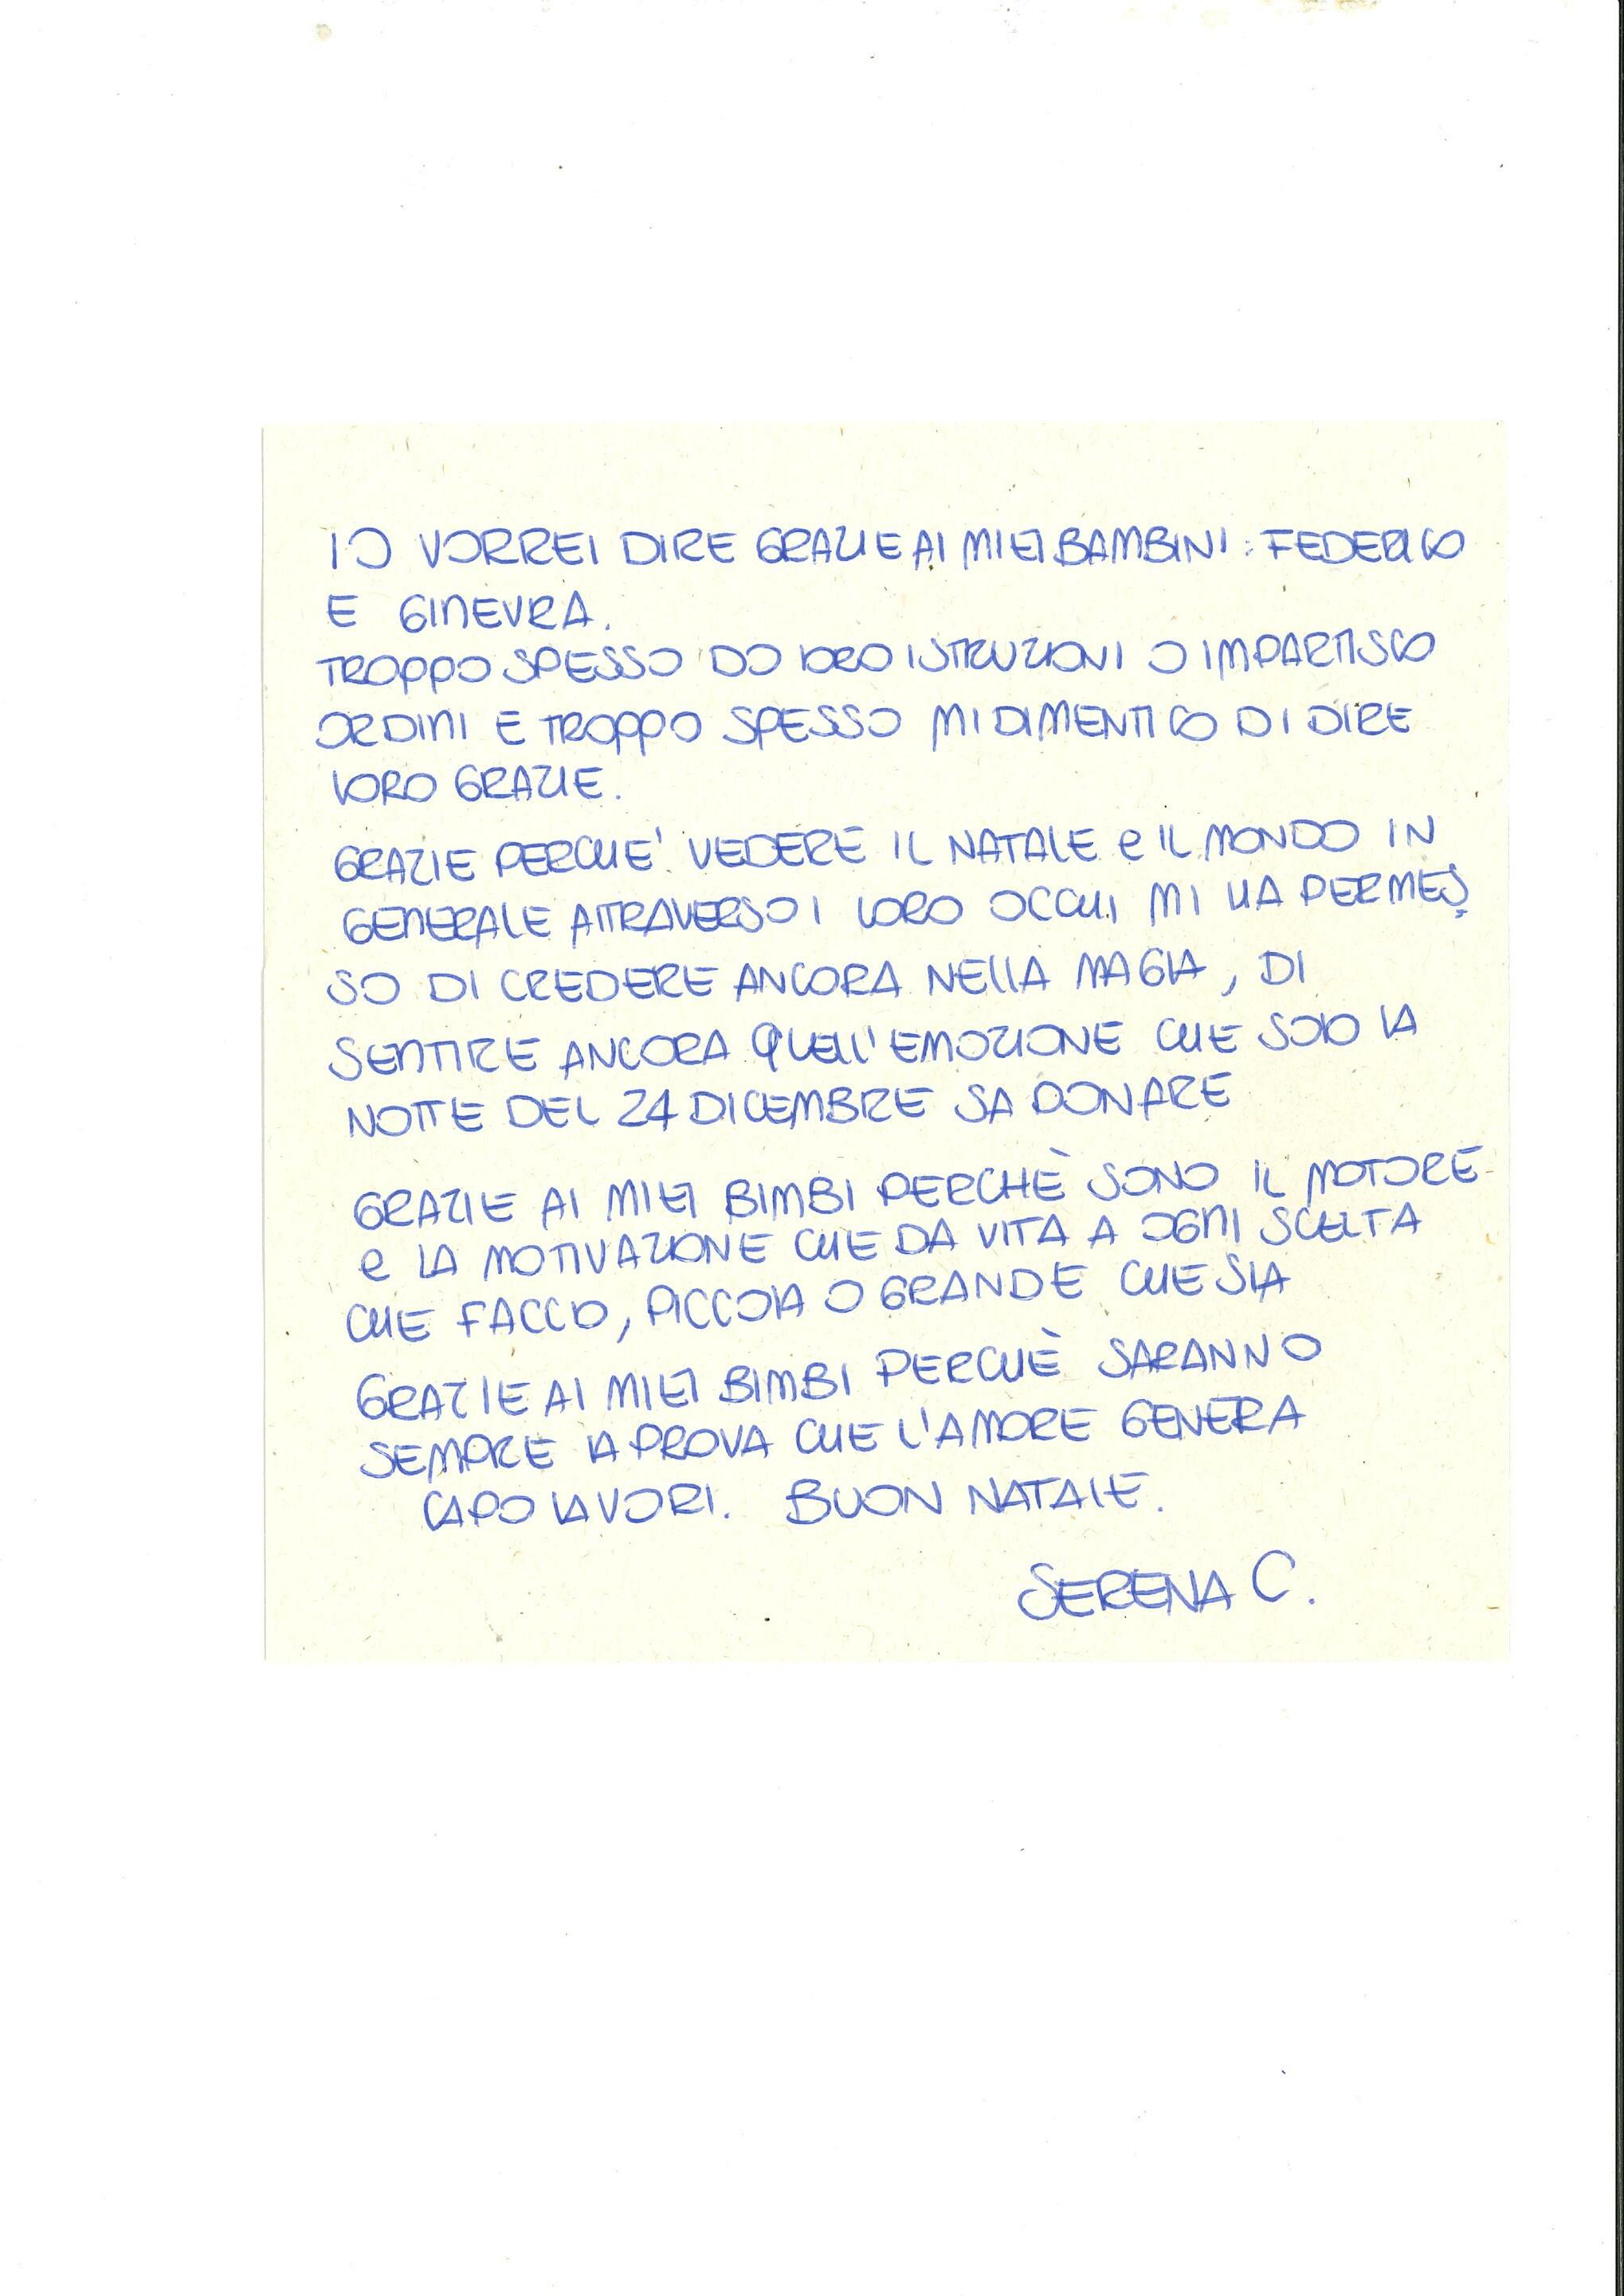 IO VORREI DIRE GRAZIE AI MIEI BAMBINI: FEDERICO
E GINEVRA.
TROPPO SPESSO DO LORO ISTRUZIONI O IMPARTISCO
ORDINI E TROPPO SPESSO MI DIMENTICO DI DIRE
LORO GRAZIE.
GRAZIE PERCHE' VEDERE IL NATALE e IL MONDO IN
GENERALE ATTRAVERSO I LORO OCCHI MI HA PERMES
SO DI CREDERE ANCORA NELLA MAGIA, DI
SENTIRE ANCORA QUELL'EMOZIONE CHE SOLO LA
NOTTE DEL 24 DICEMBRE SA DONARE
GRAZIE AI MIEI BIMBI PERCHÈ SONO IL MOTORE
e LA MOTIVAZIONE CHE DA VITA A OGNI SCELTA
CHE FACCIO, PICCOLA O GRANDE CHE SIA
GRAZIE AI MIEI BIMBI PERCHÈ SARANNO
SEMPRE LA PROVA CHE L'AMORE GENERA
CAPOLAVORI. BUON NATALE.
SERENA C.